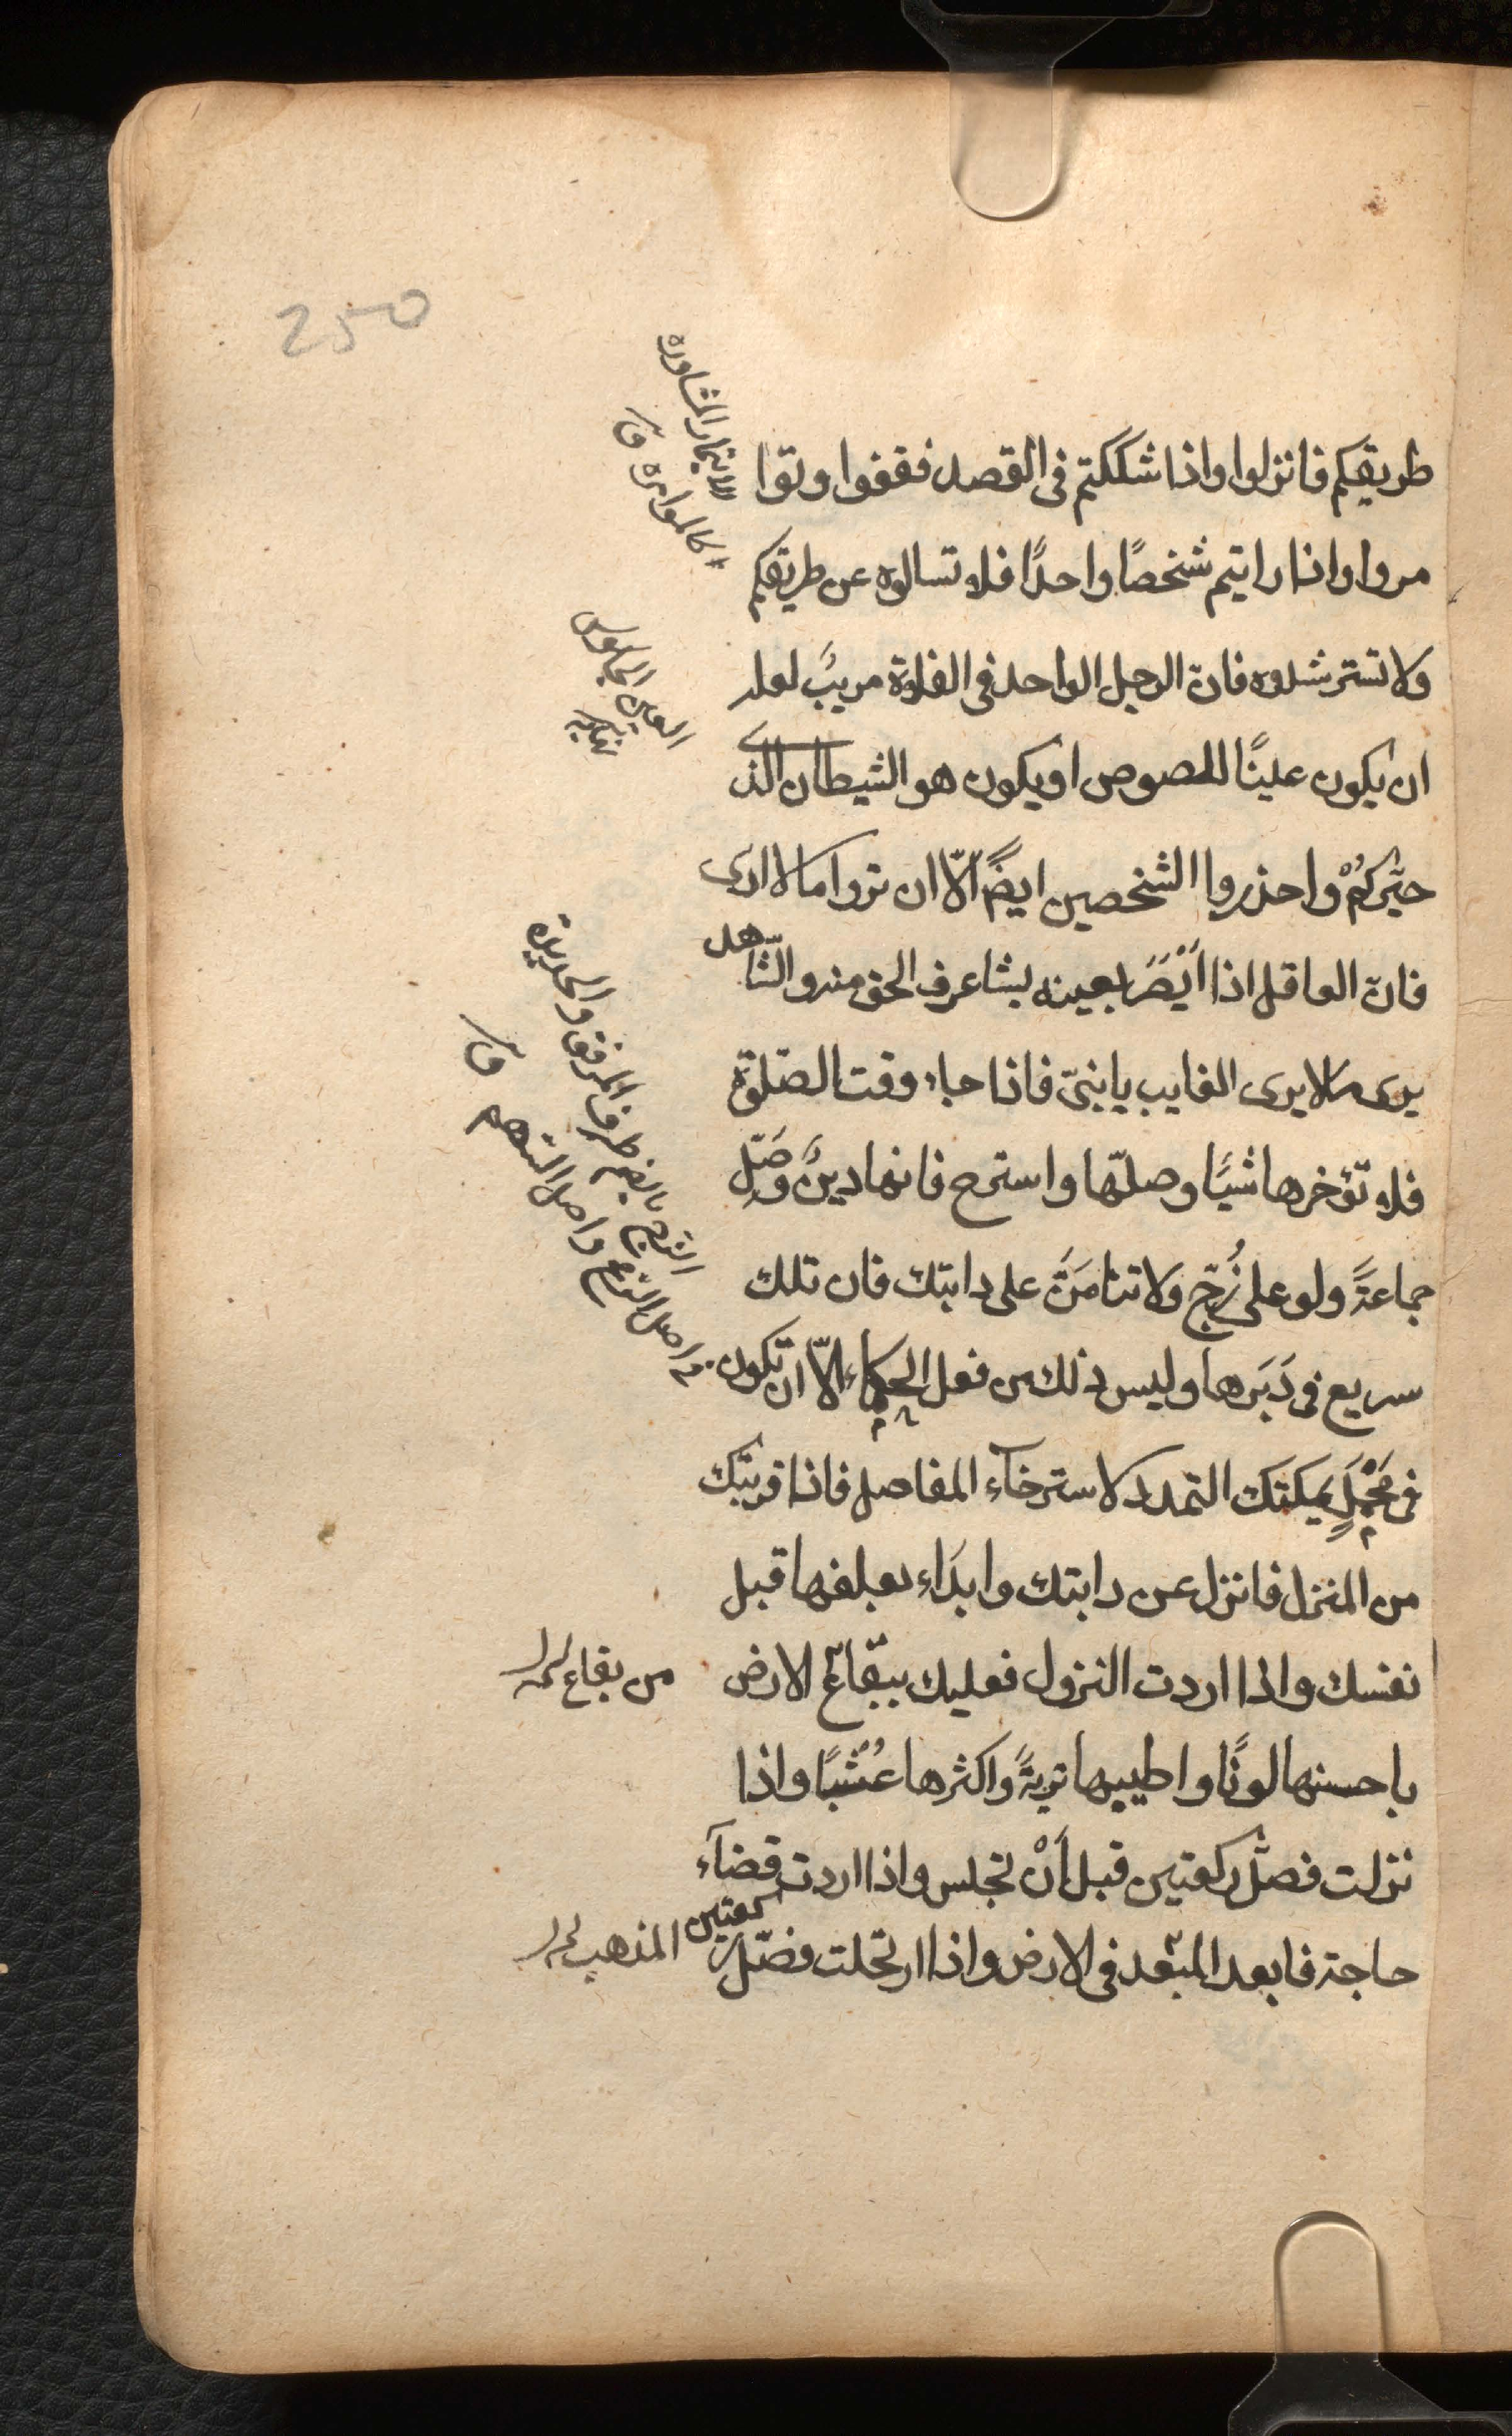 250
طريقكم فانزلوا واذا شككتم فى القصد فقفوا وتوا
مروا واذا رايتم شخصًا واحدًا فلا تسالوه عن طريقكم
ولا تسترشدوه فان الرجل الواحد فى الفلوة مريبٌ لعله
ان يكون عينًا للصوص او يكون هو الشيطان الذى
حيّركُمْ واحذروا الشخصين ايضًا الّا ان تروا مالا ارى
فان العاقل اذا اَبْصَرَ بعينه شيئا عرف الحق منه والشّاهد
يرى مالا يرى الغايب يا بنىّ فاذا جاء وقت الصّلوة
فلا تؤخرها شيئًا وصلّها واسترح فانها دينٌ وصَلِّ
جماعةً ولو على زُجّ ولا تنامَنَّ على دابتك فان تلك
سريع فى دَبَرها وليس ذلك من فعل الحكماء الّا ان تكون
فى مَحْمِلٍ يمكنك التمدد لاسترخآء المفاصل فاذا قربت
من المنزل فانزل عن دابتك وابدَاء بعلفها قبل
نفسك واذا اردت النزول فعليك ببقاع الارض
باحسنها لونًا واطيبها تربةً واكثرها عُشْبًا واذا
نزلت فصلّ ركعتين قبل اَنْ تجلس واذا اردت قضآء
حاجة فابعد المبعد فى الارض واذا ارتحلت فصّل ركعتين
الايتمار المشاورة
كالموامرة ق
العين الجاسوس
نهاية
الزج بالضم طرف المرفق والحديدة
فى اسفل الرمح ونصل السهم ق
من بقاع
المذهب